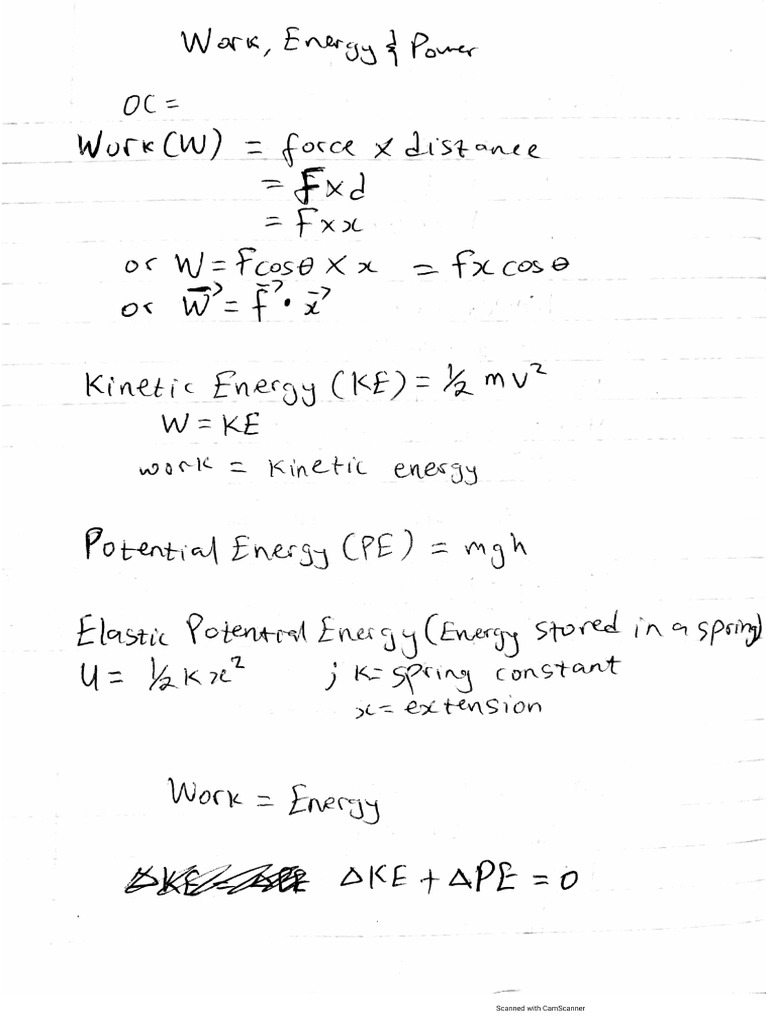 Work, Energy & Power
OC =
Work(W) = force × distance
= F×d
= F×x
or W = Fcosθ × x = fx cosθ
or W⃗ = f⃗ · x⃗
Kinetic Energy (KE) = 1/2 mv²
W = KE
work = kinetic energy
Potential Energy (PE) = mgh
Elastic Potential Energy (Energy stored in a spring)
U = 1/2 kx² ; k = spring constant
x = extension
Work = Energy
ΔKE + ΔPE = 0
Scanned with CamScanner